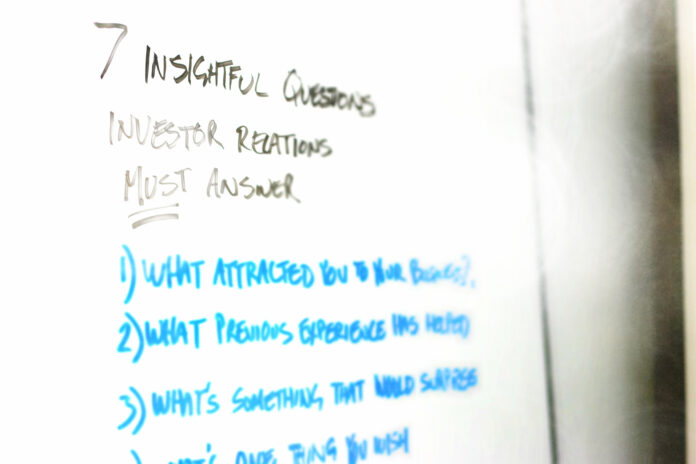 7 INSIGHTFUL QUESTIONS
INVESTOR RELATIONS
MUST ANSWER
1) WHAT ATTRACTED YOU TO YOUR BUSINESS?
2) WHAT PREVIOUS EXPERIENCE HAS HELPED
3) WHAT'S SOMETHING THAT WOULD SURPRISE
WHAT'S ONE THING YOU WISH